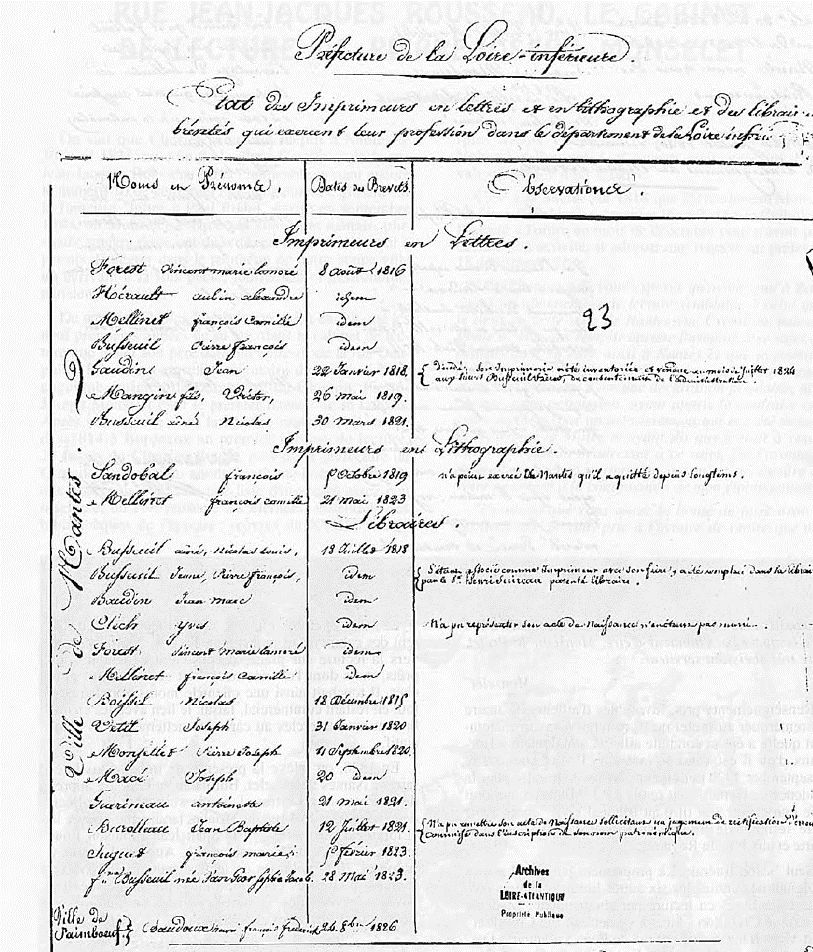 Préfecture de la Loire-inférieure.
Etat des Imprimeurs en lettres et en lithographie et des librair
brévetés qui exercent leur profession dans le département de la Loire infér
Noms et Prénoms. Dates des Brevets. Observations.
Imprimeurs en Lettres.
Forest vincent marie 8 août 1816
Hérault aubin alexandre idem
Mellinet françois Camille idem
Busseuil Pierre françois idem
23
Gaudin Jean 22 Janvier 1818. décédé; son Imprimerie a été inventoriée et vendue au mois de Juillet 1824
aux sieurs Busseuil frères, du consentement de l'administration.
Mangin fils, Victor, 26 mai 1819.
Busseuil aîné Nicolas 30 mars 1821.
Imprimeurs en Lithographie.
Sandobal françois octobre 1819 n'a point exercé à Nantes qu'il a quitté depuis longtems.
Mellinet françois camille 21 mai 1823
Libraires.
Busseuil aîné, Nicolas Louis, 18 Juillet 1818
Busseuil Jeune, Pierre françois, idem S'étant associé comme Imprimeur avec son frère, a été remplacé dans la librai
par le Sr. Henri breveté libraire.
Baudin Jean marc idem
Clech yves idem N'a pu représenter son acte de Naissance
Forest vincent marie idem
Mellinet françois Camille idem
Nicolas 18 Décembre 1815
Petit Joseph 31 Janvier 1820
Monsellet Pierre Joseph 11 Septembre 1820.
Macé Joseph 20 idem
Guérineau antoinette 21 mai 1821.
Burolleau Jean Baptiste 12 Juillet 1821. N'a pu remettre son acte de Naissance sollicitant un jugement de rectification
commise dans l'inscription de son nom patronimique.
françois marie février 1823.
Busseuil née 28 mai 1823.
Ville de Nantes.
Ville de
Paimboeuf. henri françois frederic 26 8bre 1826
Archives
de la
LOIRE-ATLANTIQUE
Propriété Publique